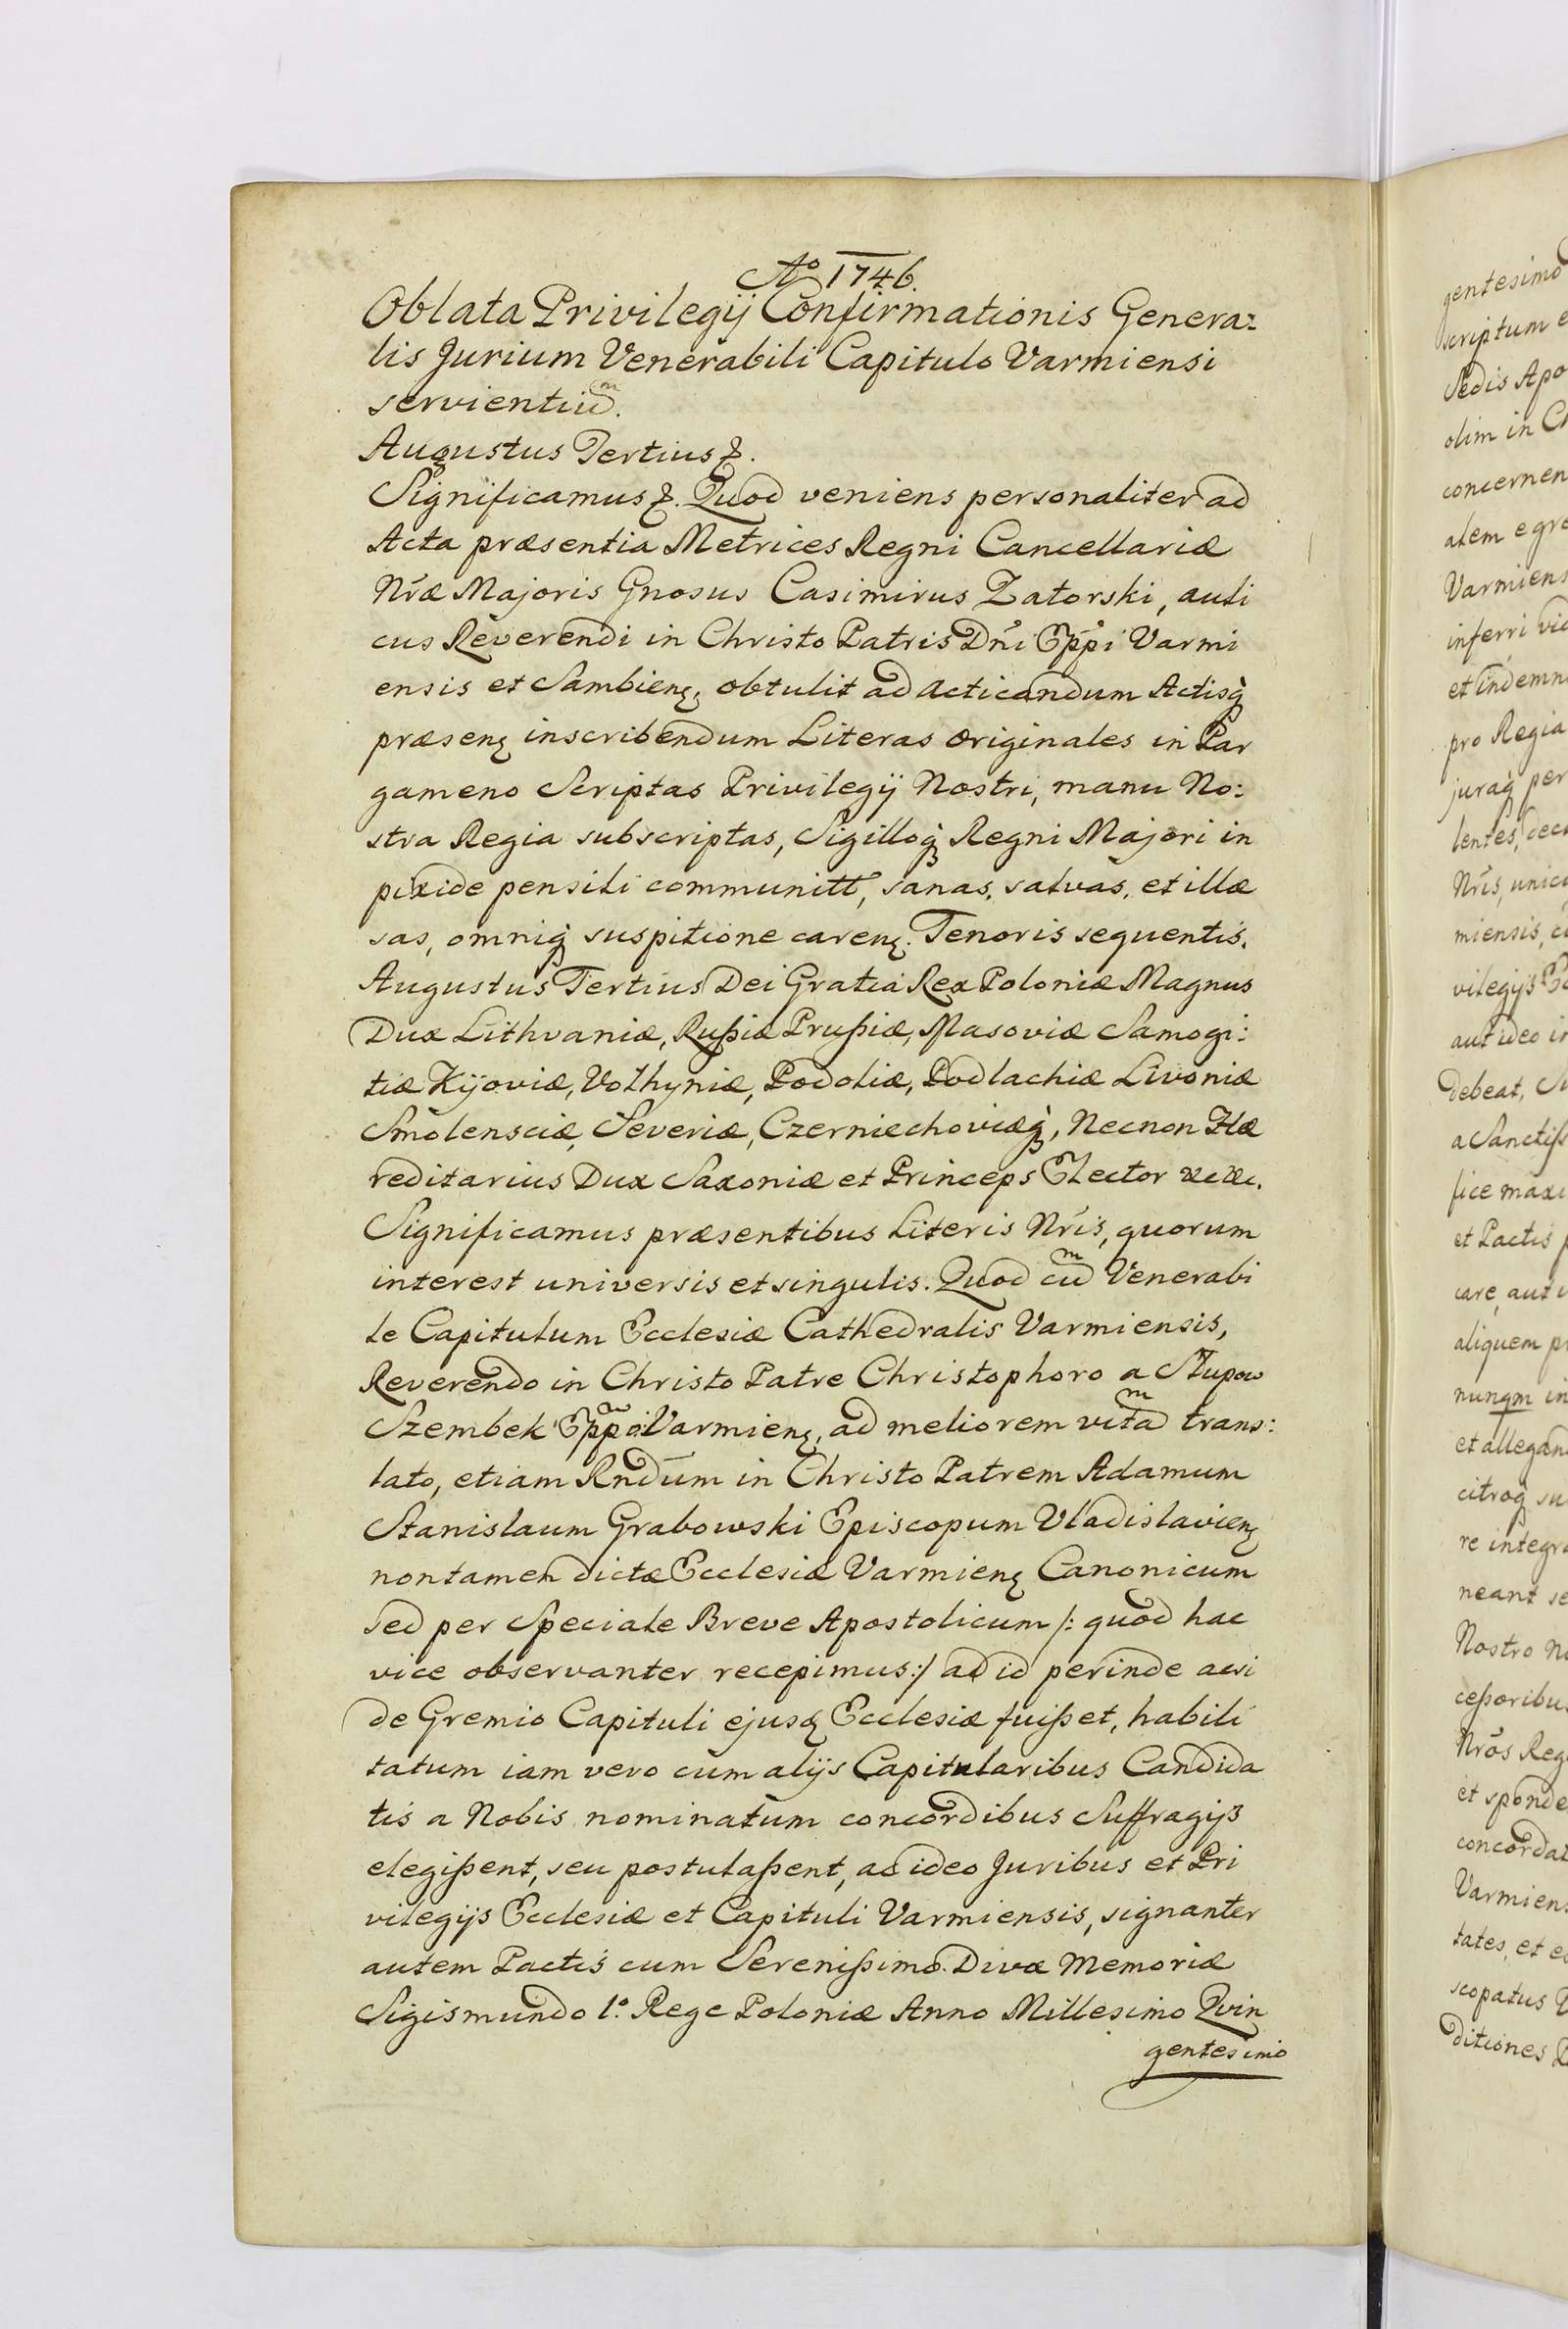 Aº 1746.
Oblata Privilegij Confirmationis Genera=
lis Jurium Venerabili Capitulo Varmiensi
servientiũ.
Augustus Tertius &.
Significamus &. Quod veniens personaliter ad
Acta præsentia Metrices Regni Cancellariæ
Nr̃æ Majoris Gnosus Casimirus Zatorski, auli
cus Reverendi in Christo Patris Dñi Ep̃pi Varmi
ensis et Sambienꝫ, obtulit ad acticandum Actisq̀
præsenꝫ inscribendum Literas originales in Par
gameno Scriptas Privilegij Nostri, manu No:
stra Regia subscriptas, Sigilloq̀ Regni Majori in
pixide pensili communitt, sanas, salvas, et illæ
sas, omniq̀ suspitione carenꝫ. Tenoris sequentis.
Augustus Tertius Dei Gratia Rex Poloniæ Magnus
Dux Lithvaniæ, Rußiæ Prußiæ, Masoviæ Samogi:
tiæ Kijoviæ, Volhyniæ, Podoliæ, Podlachiæ Livoniæ
Smolensciæ, Severiæ, Czerniechoviæq̀, Necnon Hæ
reditarius Dux Saxoniæ et Princeps Elector &c &c.
Significamus præsentibus Literis Nr̃is, quorum
interest universis et singulis. Quod cũ Venerabi
le Capitulum Ecclesiæ Cathedralis Varmiensis,
Reverendo in Christo Patre Christophoro a Slupow
Szembek Ep̃po Varmienꝫ, ad meliorem vitã trans:
lato, etiam Rndum in Christo Patrem Adamum
Stanislaum Grabowski Episcopum Vladislavienꝫ
non tamen dictæ Ecclesiæ Varmienꝫ Canonicum
sed per Speciale Breve Apostolicum /: quod hac
vice observanter recepimus :/ ad id perinde acsi
de Gremio Capituli ejusꝫ Ecclesiæ fuißet, habili
tatum iam vero cum alijs Capitularibus Candida
tis a Nobis nominatum concordibus Suffragijs
elegißent, seu postulaßent, ac ideo Juribus et Pri
vilegijs Ecclesiæ et Capituli Varmiensis, signanter
autem Pactis cum Serenißimo Divæ Memoriæ
Sigismundo 1º. Rege Poloniæ Anno Millesimo Qvin
gentesimo
gentesimo
scriptum
Sedis Apo
olim in
concernen
atem egre
Varmiens
inferri
et indemn
pro Regia
juraq̀ per
lentes,
Nr̃is, unic
miensis,
vilegijs
aut ideo
debeat,
a Sanctiß
fice maxi
et Pactis
care, aut
aliquem
nunqm in
et allegan
citroq̀
re integr
neant
Nostro
ceßoribus
Nr̃os Reg
et sponde
concordat
Varmiens
tates, et
scopatus
ditiones